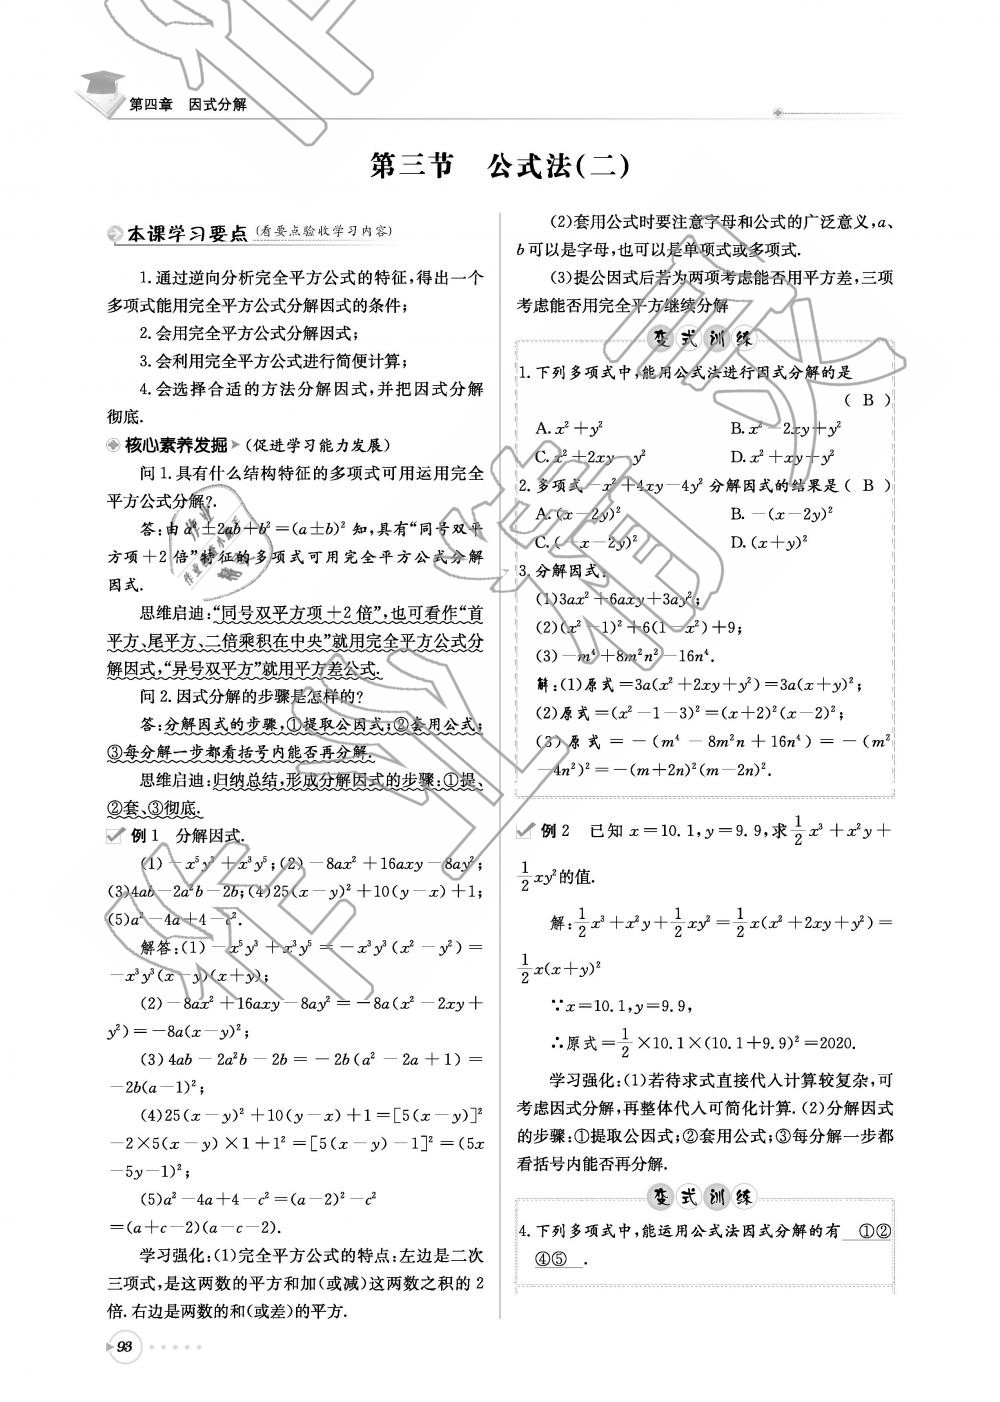 第四章 因式分解
第三节 公式法(二)
本课学习要点(看要点验收学习内容)
1.通过逆向分析完全平方公式的特征,得出一个
多项式能用完全平方公式分解因式的条件;
2.会用完全平方公式分解因式;
3.会利用完全平方公式进行简便计算;
4.会选择合适的方法分解因式,并把因式分解
彻底.
核心素养发掘(促进学习能力发展)
问1.具有什么结构特征的多项式可用运用完全
平方公式分解?.
答:由a²±2ab+b²=(a±b)²知,具有“同号双平
方项+2倍”特征的多项式可用完全平方公式分解
因式.
思维启迪:“同号双平方项+2倍”,也可看作“首
平方、尾平方、二倍乘积在中央”就用完全平方公式分
解因式,“异号双平方”就用平方差公式.
问2.因式分解的步骤是怎样的?
答:分解因式的步骤,①提取公因式;②套用公式;
③每分解一步都看括号内能否再分解.
思维启迪:归纳总结,形成分解因式的步骤:①提、
②套、③彻底.
例1 分解因式.
(1)-x⁵y³+x³y⁵;(2)-8ax²+16axy-8ay²;
(3)4ab-2a²b-2b;(4)25(x-y)²+10(y-x)+1;
(5)a²-4a+4-c².
解答:(1)-x⁵y³+x³y⁵=-x³y³(x²-y²)=
-x³y³(x-y)(x+y);
(2)-8ax²+16axy-8ay²=-8a(x²-2xy+
y²)=-8a(x-y)²;
(3)4ab-2a²b-2b=-2b(a²-2a+1)=
-2b(a-1)²;
(4)25(x-y)²+10(y-x)+1=[5(x-y)]²
-2×5(x-y)×1+1²=[5(x-y)-1]²=(5x
-5y-1)²;
(5)a²-4a+4-c²=(a-2)²-c²
=(a+c-2)(a-c-2).
学习强化:(1)完全平方公式的特点:左边是二次
三项式,是这两数的平方和加(或减)这两数之积的2
倍.右边是两数的和(或差)的平方.
(2)套用公式时要注意字母和公式的广泛意义,a、
b可以是字母,也可以是单项式或多项式.
(3)提公因式后若为两项考虑能否用平方差,三项
考虑能否用完全平方继续分解
变式训练
1.下列多项式中,能用公式法进行因式分解的是
(B)
A.x²+y² B.x²-2xy+y²
C.x²+2xy-y² D.x²+xy+y²
2.多项式-x²+4xy-4y²分解因式的结果是(B)
A.(x-2y)² B.-(x-2y)²
C.(-x-2y)² D.(x+y)²
3.分解因式:
(1)3ax²+6axy+3ay²;
(2)(x²-1)²+6(1-x²)+9;
(3)-m⁴+8m²n²-16n⁴.
解:(1)原式=3a(x²+2xy+y²)=3a(x+y)²;
(2)原式=(x²-1-3)²=(x+2)²(x-2)²;
(3)原式=-(m⁴-8m²n+16n⁴)=-(m²
-4n²)²=-(m+2n)²(m-2n)².
例2 已知x=10.1,y=9.9,求1/2x³+x²y+
1/2xy²的值.
解:1/2x³+x²y+1/2xy²=1/2x(x²+2xy+y²)=
1/2x(x+y)²
∵x=10.1,y=9.9,
∴原式=1/2×10.1×(10.1+9.9)²=2020.
学习强化:(1)若待求式直接代入计算较复杂,可
考虑因式分解,再整体代入可简化计算.(2)分解因式
的步骤:①提取公因式;②套用公式;③每分解一步都
看括号内能否再分解.
变式训练
4.下列多项式中,能运用公式法因式分解的有 ①②
④⑤.
93
作业精灵